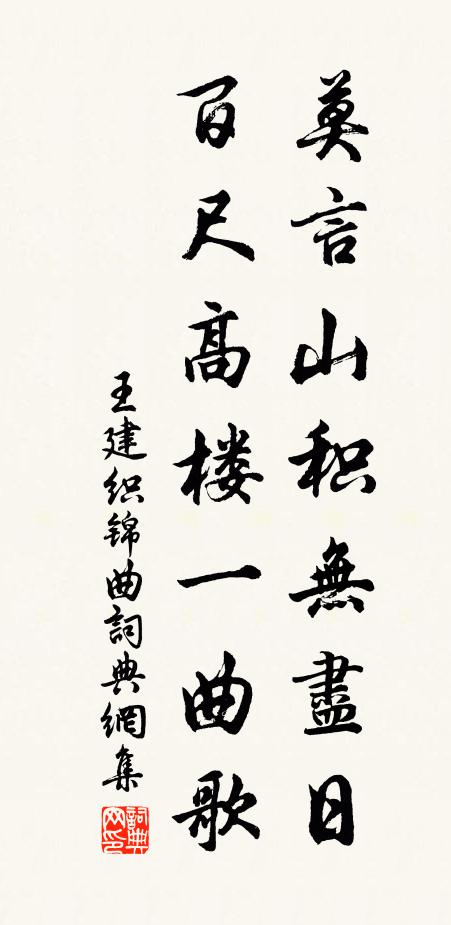 莫言山积無盡日
百尺高楼一曲歌
王建织锦曲詞典網集
詞典
网印